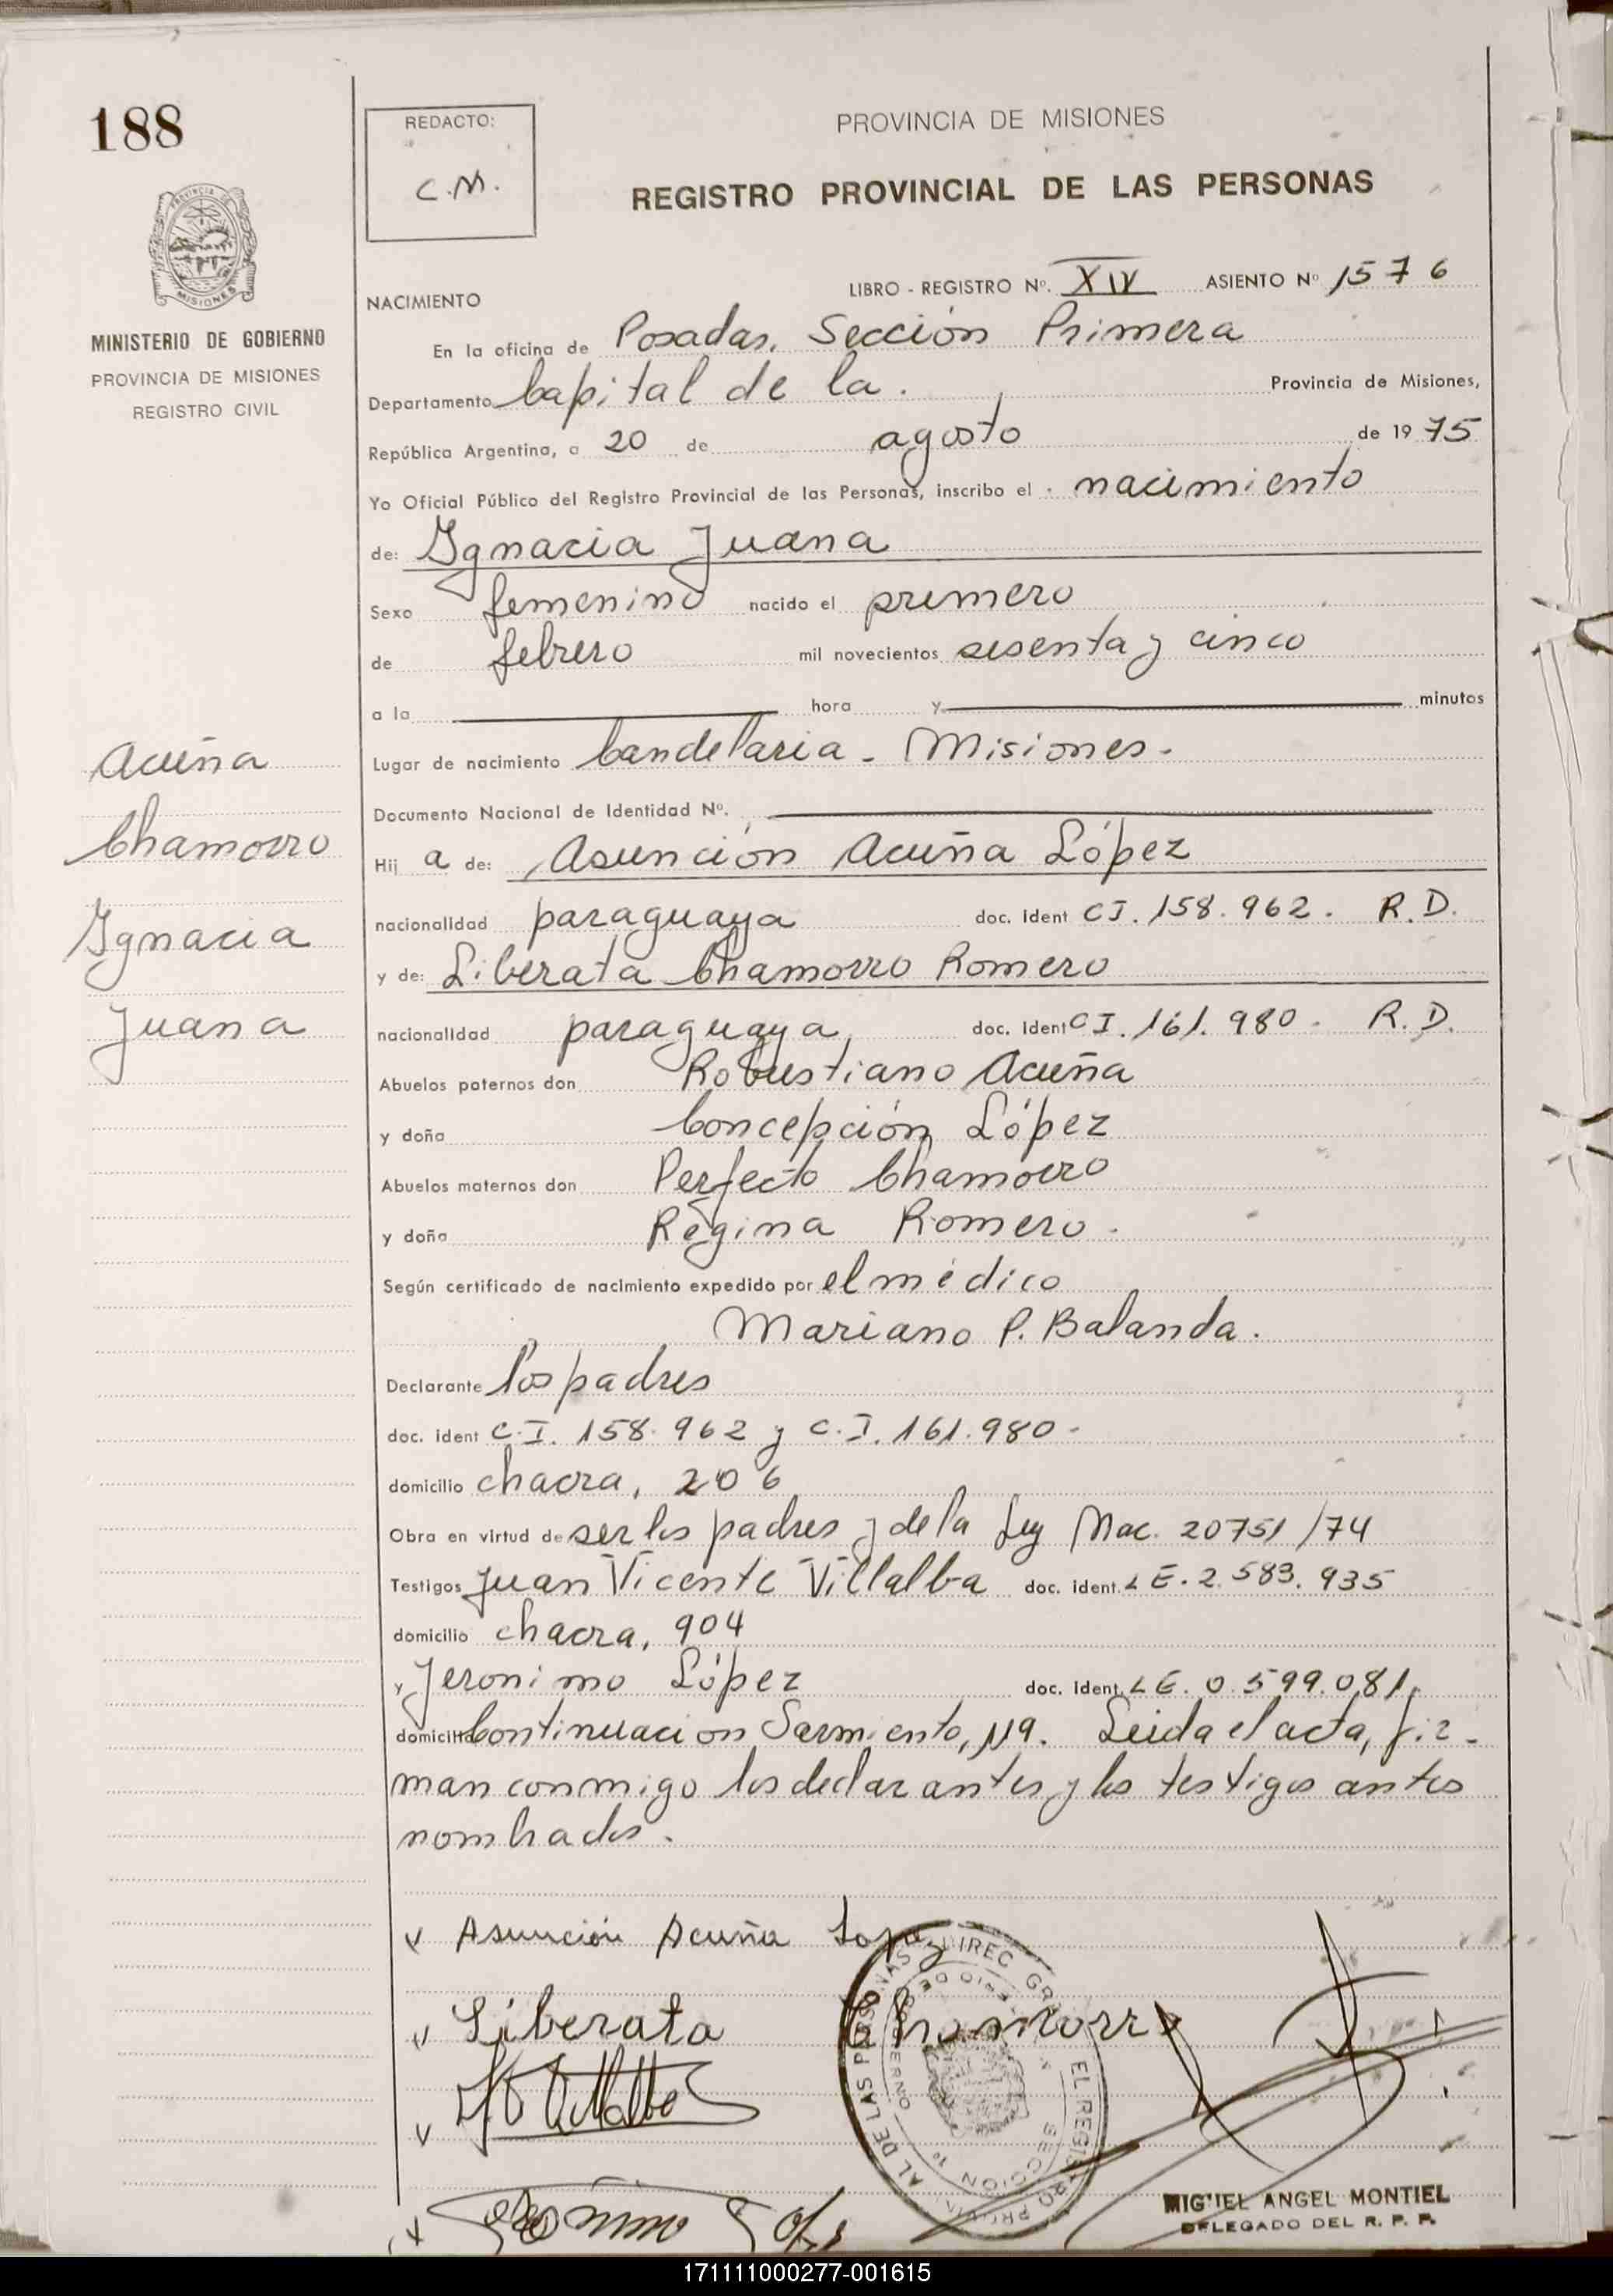 188
REDACTO:
C.M.
PROVINCIA DE MISIONES
REGISTRO PROVINCIAL DE LAS PERSONAS
PROVINCIA
MISIONES
MINISTERIO DE GOBIERNO
PROVINCIA DE MISIONES
REGISTRO CIVIL
NACIMIENTO
LIBRO - REGISTRO Nº. XIV ASIENTO Nº 1576
En la oficina de Posadas, Sección Primera
Departamento Capital de la . Provincia de Misiones,
República Argentina, a 20 de agosto de 19 75
Yo Oficial Público del Registro Provincial de las Personas, inscribo el nacimiento
de: Ygnacia Juana
Sexo femenino nacido el primero
de febrero mil novecientos sesenta y cinco
a la hora y minutos
Lugar de nacimiento Candelaria - Misiones -
Documento Nacional de Identidad Nº.
Acuña
Chamorro
Ygnacia
Juana
Hij a de: Asunción Acuña López
nacionalidad paraguaya doc. ident CI. 158.962. R.D.
y de: Liberata Chamorro Romero
nacionalidad paraguaya doc. ident CI. 161.980 - R.D.
Abuelos paternos don Robustiano Acuña
y doña Concepción López
Abuelos maternos don Perfecto Chamorro
y doña Regina Romero.
Según certificado de nacimiento expedido por el médico
Mariano P. Balanda.
Declarante los padres
doc. ident C.I. 158.962 y C.I. 161.980 -
domicilio chacra, 206
Obra en virtud de ser los padres y de la Ley Nac. 20751/74
Testigos Juan Vicente Villalba doc. ident. LE. 2.583.935
domicilio chacra, 904
y Jeronimo López doc. ident. LE. 0.599.081,
domicilio Continuacion Sarmiento, 119. Leida el acta, fir-
man conmigo los declarantes y los testigos antes
nombrados.
Asunción Acuña Lopez
Liberata Chamorro
MIGUEL ANGEL MONTIEL
DELEGADO DEL R. P. P.
171111000277-001615